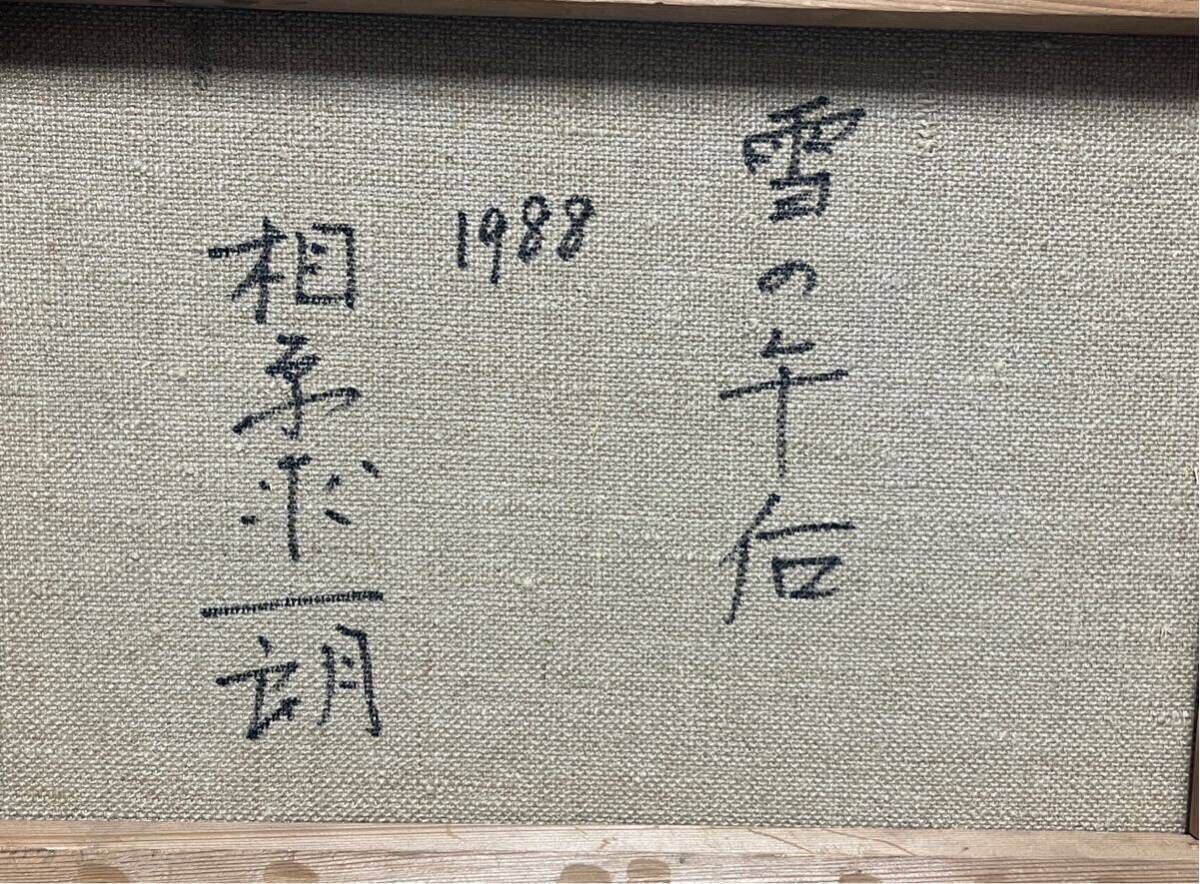 雪の午后
1988
相原求一朗